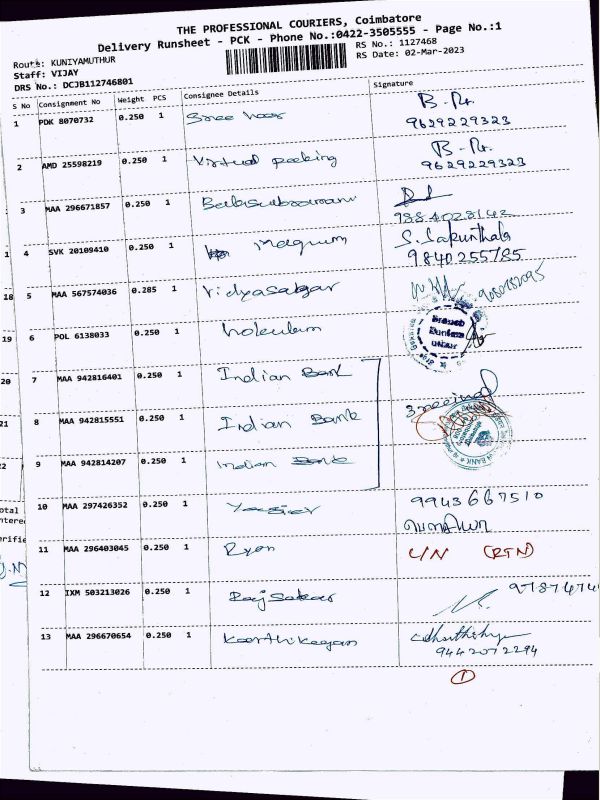 THE PROFESSIONAL COURIERS, Coimbatore
Delivery Runsheet - PCK - Phone No.:0422-3505555 - Page No.:1
Route: KUNIYAMUTHUR
RS No.: 1127468
Staff: VIJAY
RS Date: 02-Mar-2023
DRS No.: DCJB112746801
S No Consignment No Weight PCS Consignee Details Signature
1 PDK 8070732 0.250 1 B-
9629229323
2 AMD 25598219 0.250 1 Virtual B-
9629229323
3 MAA 296671857 0.250 1 Balasubramani
9884028142
4 SVK 20109410 0.250 1 magnum S. Sakunthala
9840255785
5 MAA 567574036 0.285 1 Vidyasagar
6 POL 6138033 0.250 1
Branch
7 MAA 942816401 0.250 1 Indian Bank
8 MAA 942815551 0.250 1 Indian Bank
9 MAA 942814207 0.250 1 Indian Bank
BANK
10 MAA 297426352 0.250 1 9943667510
11 MAA 296403045 0.250 1 Ryan L/N (RTN)
12 IXM 503213026 0.250 1 Raj Sekar 9787474
13 MAA 296670654 0.250 1 Karthikeyan
9442072294
1
18
19
20
21
22
otal
ntered
erifie